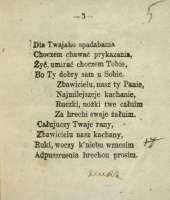 — 3 —
Dla Twajaho spadabania
Choczem chawać prykazania,
Żyć, umirać choczem Tobie,
Bo Ty dobry sam u Sobie.
Zbawicielu, nasz ty Panie,
Najmilejszeje kachanie,
Ruczki, nożki twe całuim
Za hrechi swaje żałuim.
Całujuczy Twaje rany,
Zbawicielu nasz kachany,
Ruki, woczy k'niebu wznosim
Adpuszczenia hrechou prosim.